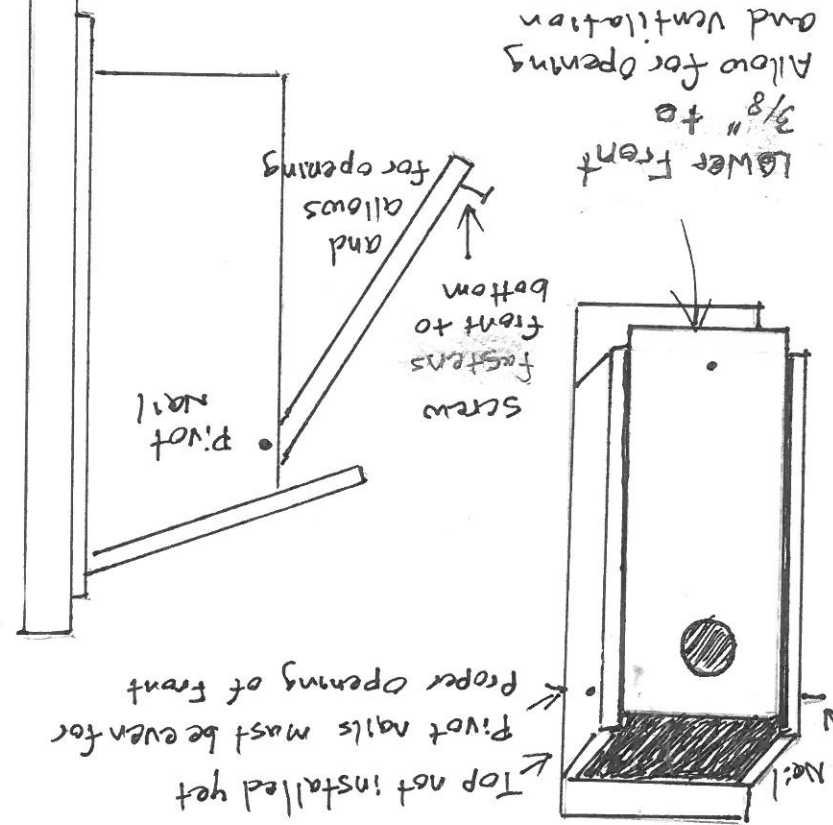 Nail
Top not installed yet
Pivot nails must be even for
Proper opening of Front
Pivot
Nail
screw
fastens
front to
bottom
and
allows
for opening
Lower Front
3/8" to
Allow for opening
and ventilation